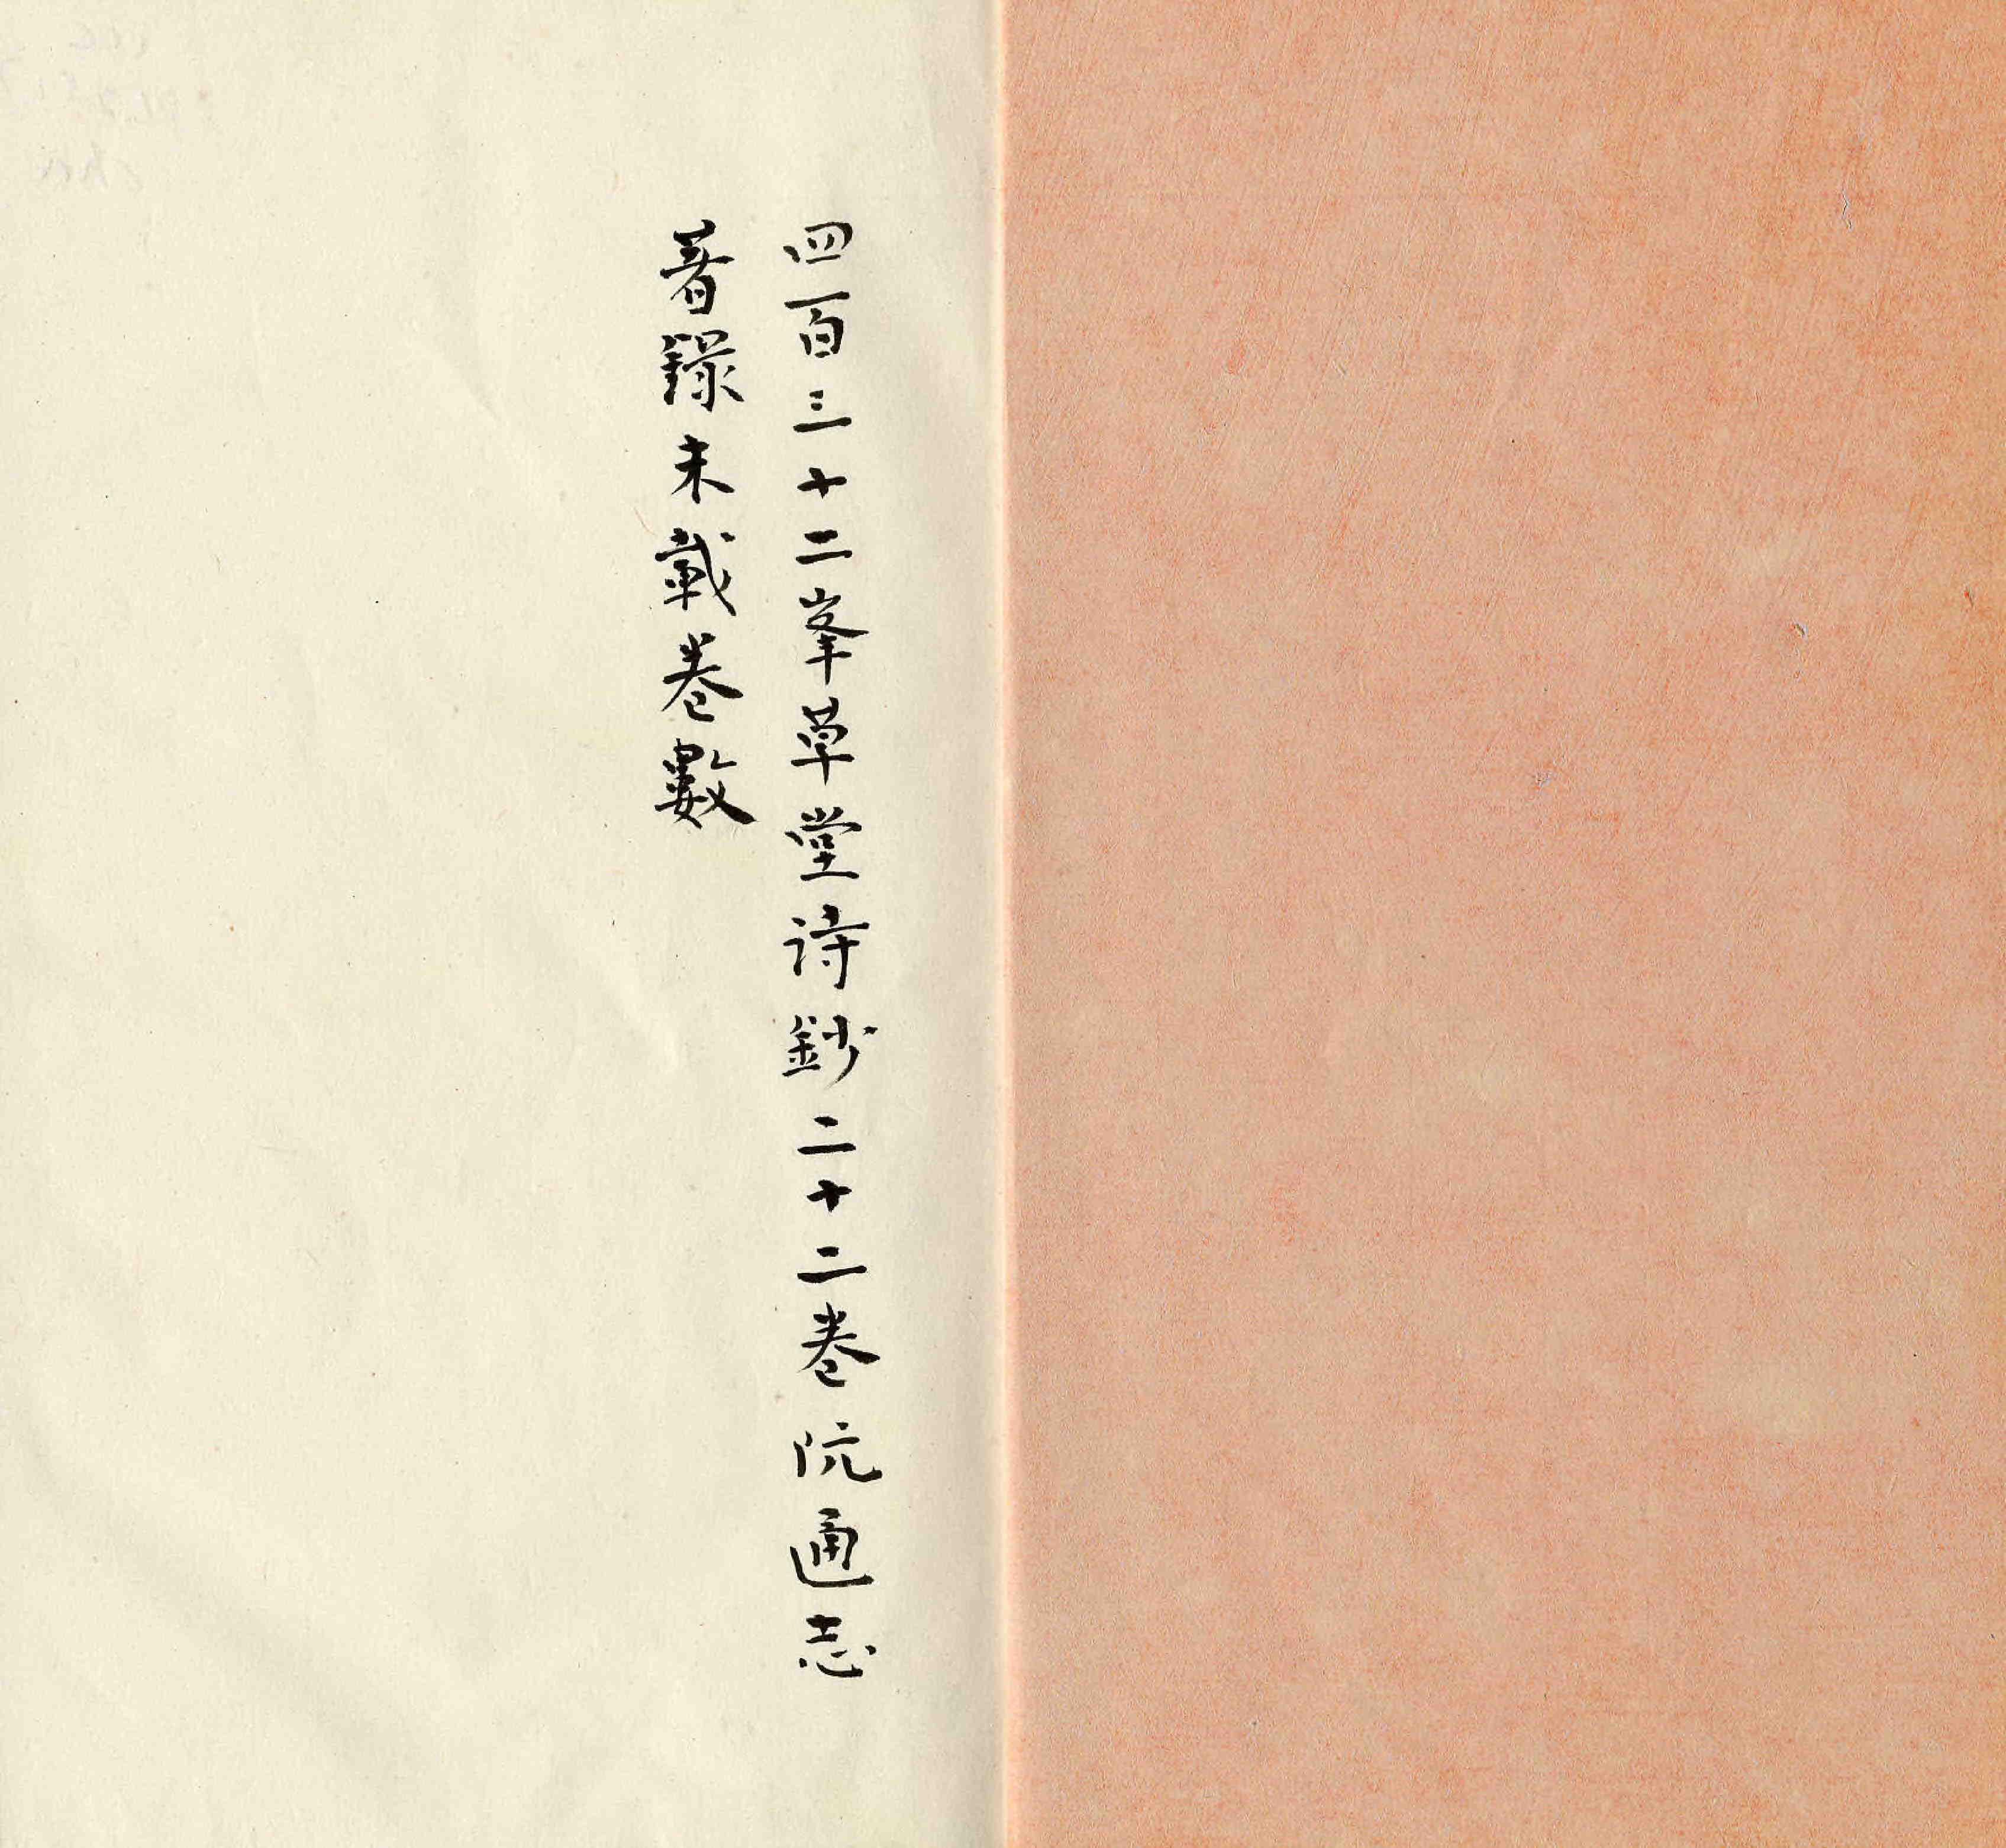 四百三十二峯草堂詩鈔二十二卷阮通志
著録未載卷數